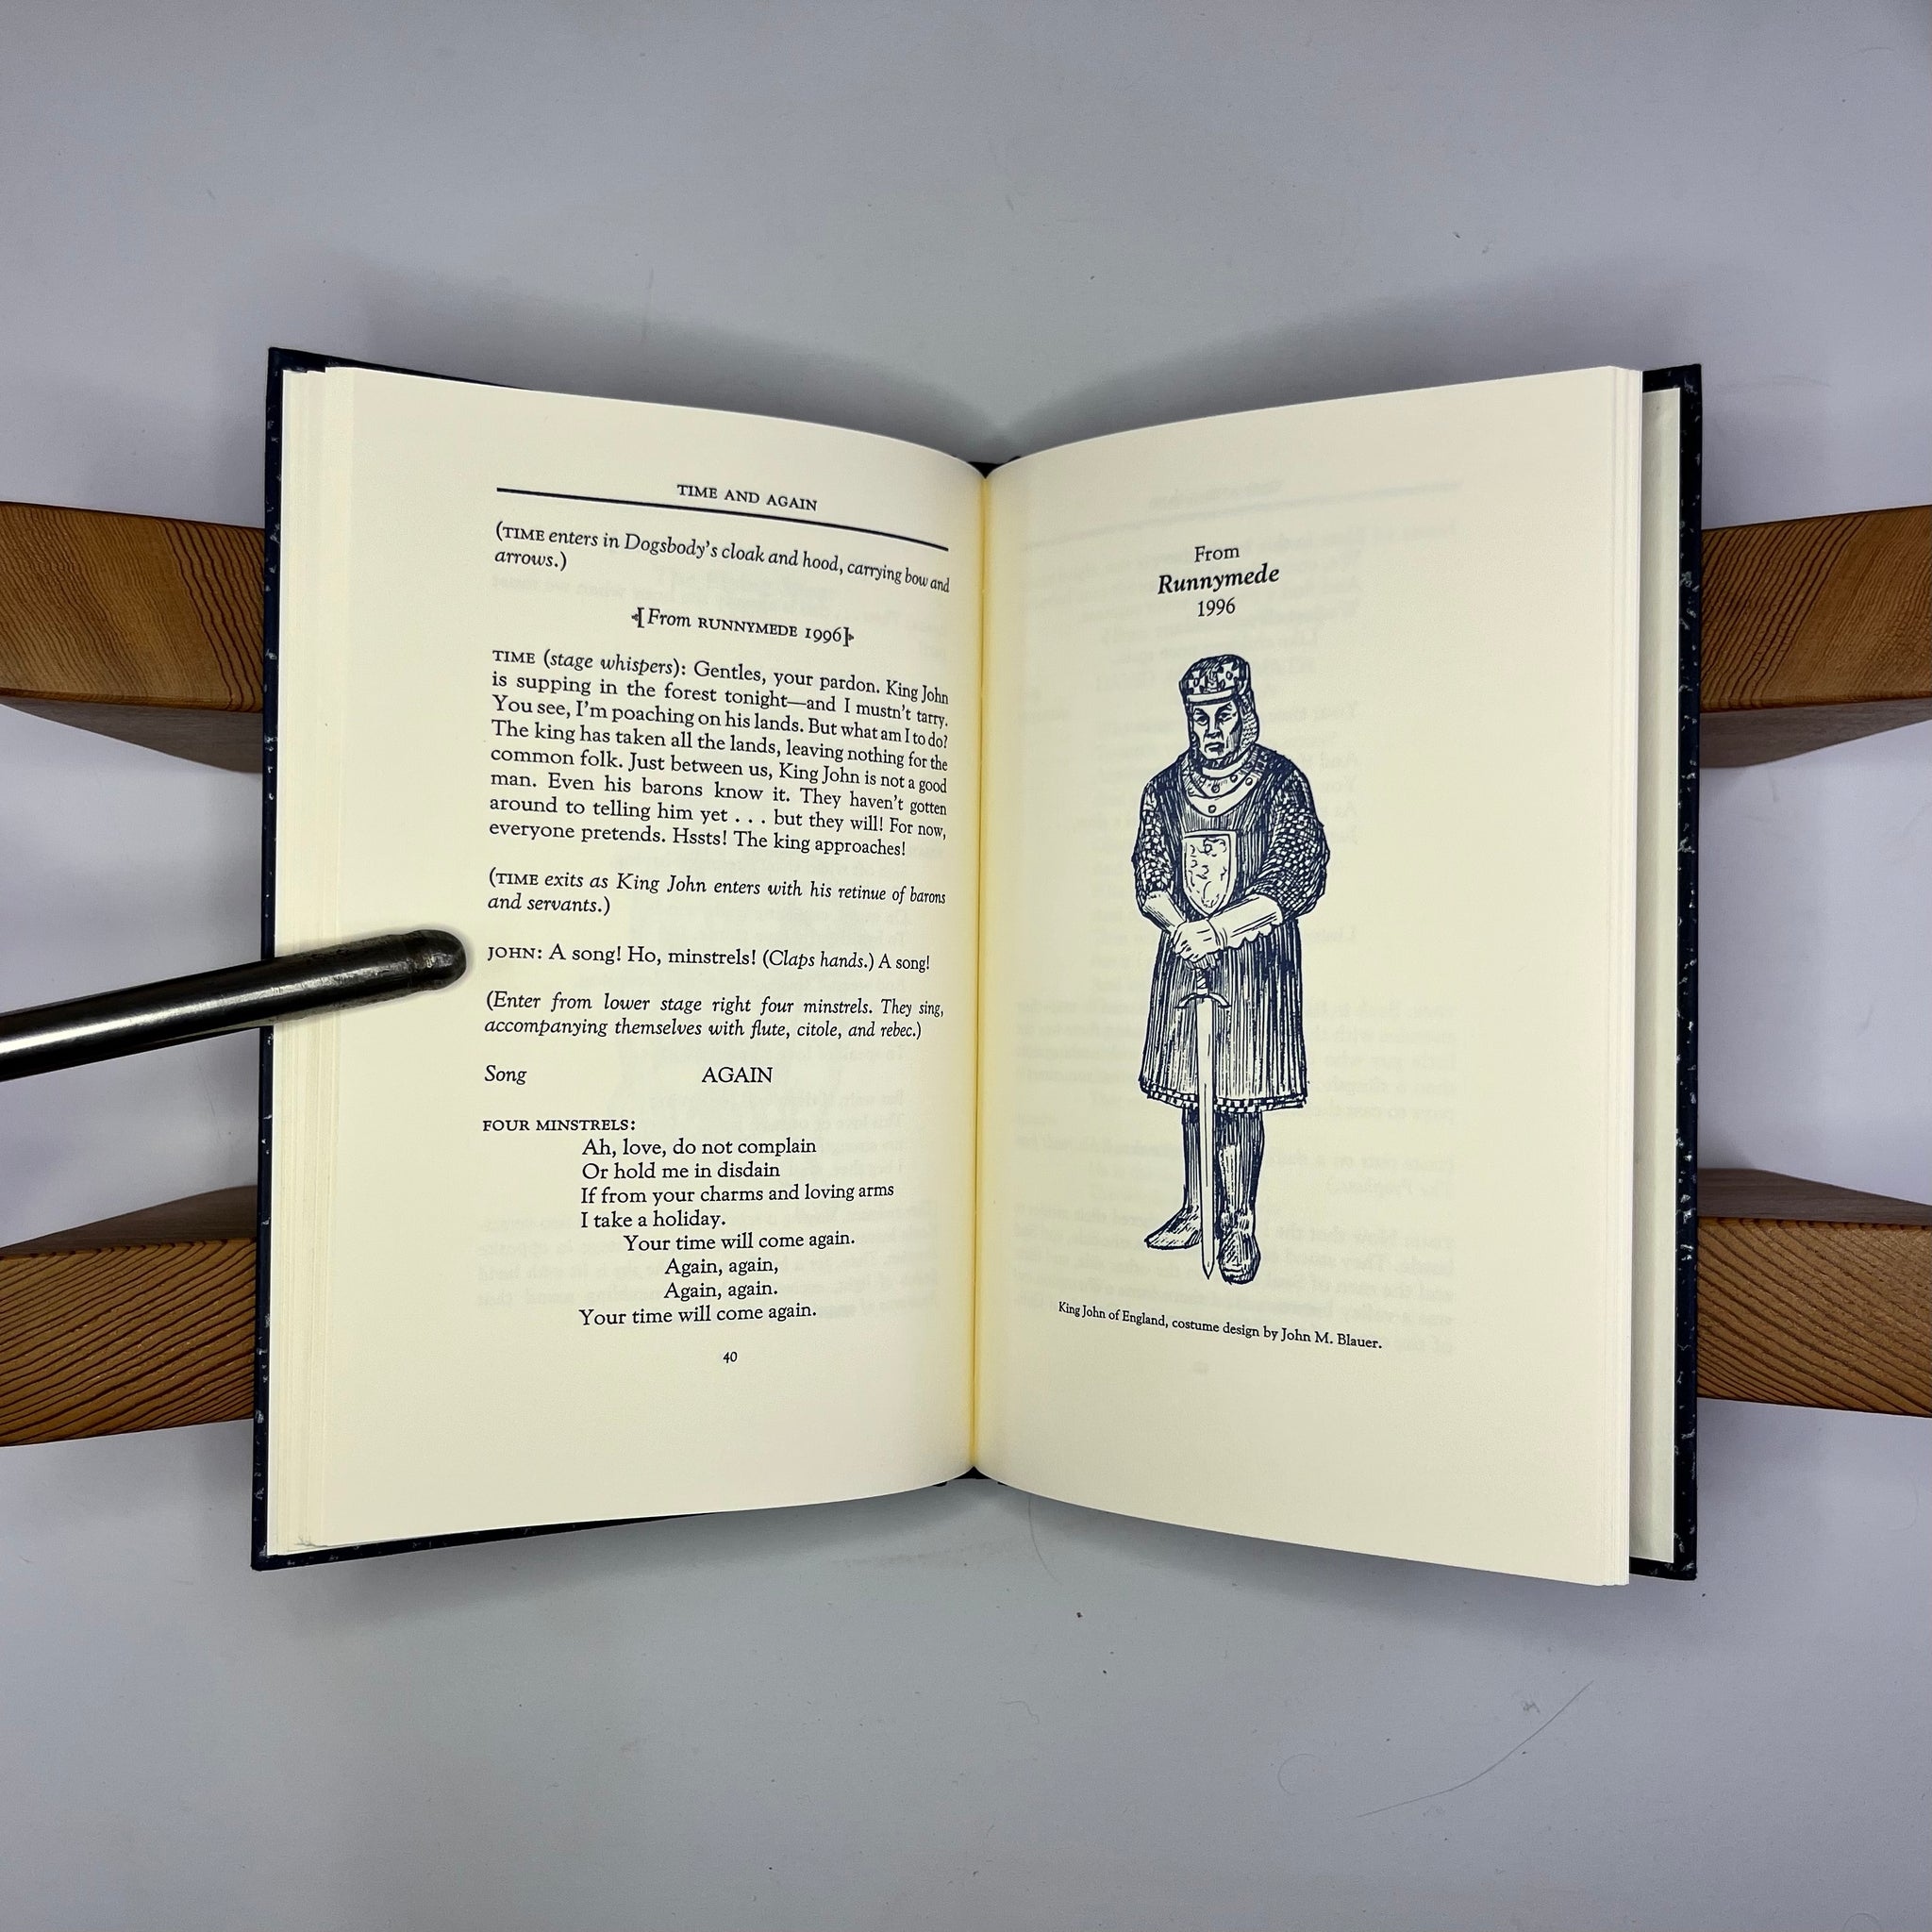 TIME AND AGAIN
(TIME enters in Dogsbody's cloak and hood, carrying bow and
arrows.)
[From RUNNYMEDE 1996]
TIME (stage whispers): Gentles, your pardon. King John
is supping in the forest tonight—and I mustn't tarry.
You see, I'm poaching on his lands. But what am I to do?
The king has taken all the lands, leaving nothing for the
common folk. Just between us, King John is not a good
man. Even his barons know it. They haven't gotten
around to telling him yet . . . but they will! For now,
everyone pretends. Hssts! The king approaches!
(TIME exits as King John enters with his retinue of barons
and servants.)
JOHN: A song! Ho, minstrels! (Claps hands.) A song!
(Enter from lower stage right four minstrels. They sing,
accompanying themselves with flute, citole, and rebec.)
Song AGAIN
FOUR MINSTRELS:
Ah, love, do not complain
Or hold me in disdain
If from your charms and loving arms
I take a holiday.
Your time will come again.
Again, again,
Again, again.
Your time will come again.
40
From
Runnymede
1996
King John of England, costume design by John M. Blauer.